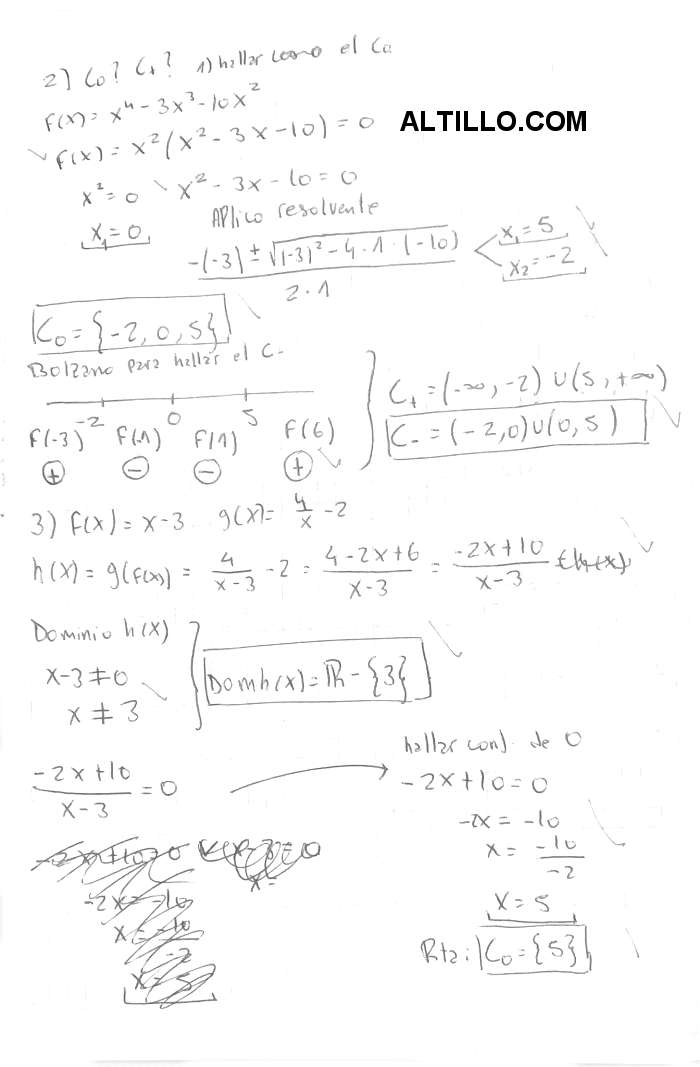 2) C₀? C₊? 1) hallar como el C₀
F(x) = x⁴ - 3x³ - 10x²
ALTILLO.COM
F(x) = x²(x² - 3x - 10) = 0
x² = 0 x² - 3x - 10 = 0
x₁ = 0 Aplico resolvente
-(-3) ± √(-3)² - 4 . 1 . (-10) x₁ = 5
2 . 1 x₂ = -2
C₀ = {-2, 0, 5}
Bolzano para hallar el C-
-2 0 5
F(-3) F(-1) F(1) F(6)
+ - - +
C₊ = (-∞, -2) U (5, +∞)
C₋ = (-2, 0) U (0, 5)
3) F(x) = x - 3 g(x) = 4/x - 2
h(x) = g(F(x)) = 4/(x-3) - 2 = (4 - 2x + 6)/(x-3) = (-2x + 10)/(x-3)
Dominio h(x)
x - 3 ≠ 0
x ≠ 3
Dom h(x) = ℝ - {3}
(-2x + 10)/(x - 3) = 0
hallar conj. de 0
-2x + 10 = 0
-2x = -10
x = -10/-2
x = 5
Rta: C₀ = {5}
-2x + 10 = 0
-2x = -10
x = -10/-2
x = 5